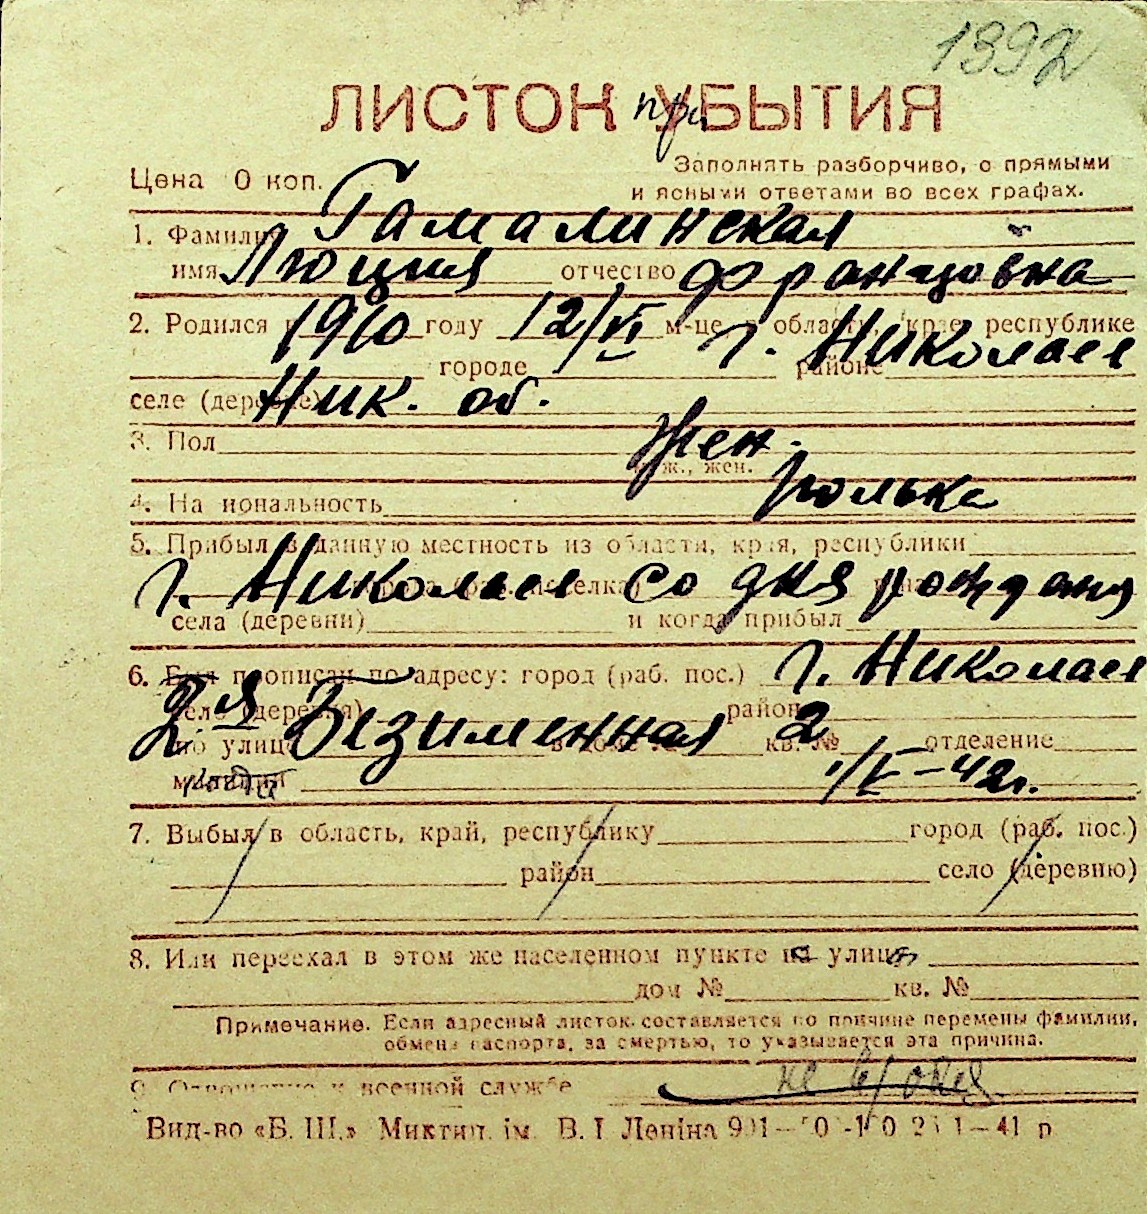 1392
ЛИСТОК при УБЫТИЯ
Цена 0 коп. Заполнять разборчиво, с прямыми
и ясными ответами во всех графах.
1. Фамилия Гамалинская
имя Люция отчество Францовна
2. Родился в 1910 году 12/VI м-це в области, крае, республике
городе районе г. Николаев
селе (деревне) Ник. об.
3. Пол жен.
муж., жен.
4. Национальность полька
5. Прибыл в данную местность из области, края, республики
г. Николаев со дня рождения
села (деревни) и когда прибыл
6. Был прописан по адресу: город (раб. пос.) г. Николаев
село (деревня) район
по улице 2я Безименная 2 в доме № кв. № отделение
милиции 1/V-42г.
7. Выбыл в область, край, республику город (раб. пос.)
район село (деревню)
8. Или переехал в этом же населенном пункте на улицу
дом № кв. №
Примечание. Если адресный листок составляется по причине перемены фамилии,
обмена паспорта, за смертью, то указывается эта причина.
9. Отношение к военной службе
Вид-во «Б. Ш.» Миктип. ім. В. І Леніна